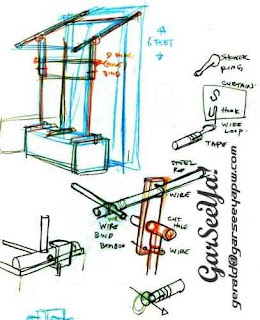 6 FEET
SHOWER
RING
CURTAIN
HOOK
WIRE
LOOP
TAPE
STEEL
ROD
WIRE
WIRE
BIND
BAMBOO
CUT
HOLE
WIRE
GarSeeYa!
gerald@garseeyapw.com